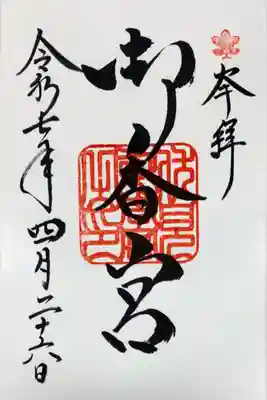 奉拝
御香宮
令和七年四月二十六日